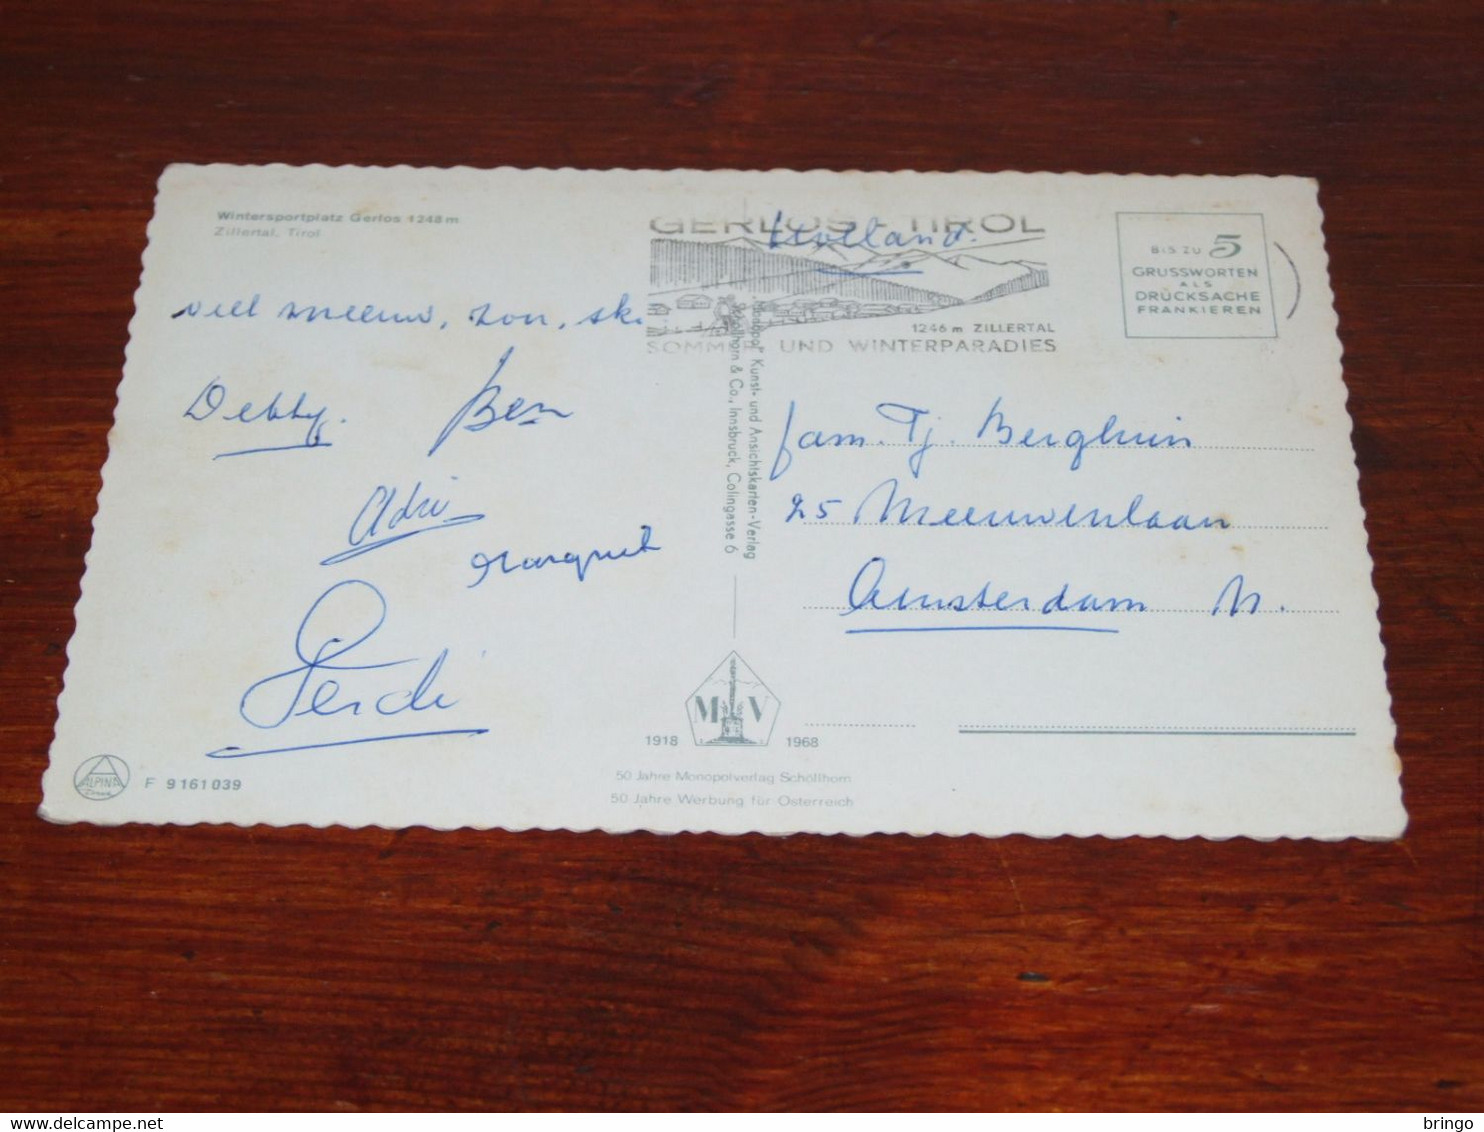 Wintersportplatz Gerlos 1248 m
Zillertal, Tirol
GERLOS - TIROL
Holland.
1246 m ZILLERTAL
SOMMER UND WINTERPARADIES
BIS ZU 5
GRUSSWORTEN
ALS
DRUCKSACHE
FRANKIEREN
veel sneeuw, zon, ski
Debby.
Ben
Adri
Margriet
Ferdi
„Monopol" Kunst- und Ansichtskarten-Verlag
Schöllhorn & Co., Innsbruck, Colingasse 6
fam. Tj. Berghuin
25 Meeuwenlaan
Amsterdam N.
M V
1918 1968
50 Jahre Monopolverlag Schöllhorn
50 Jahre Werbung für Österreich
ALPINA
F 9161039
© delcampe.net
bringo